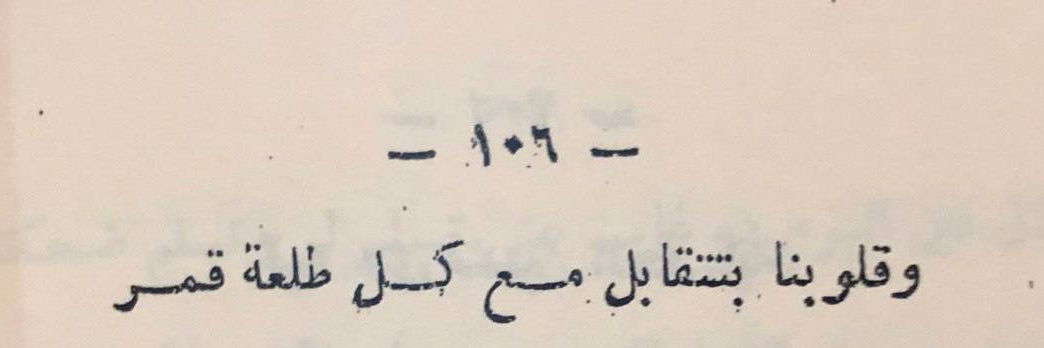 — ١٠٦ —
وقلوبنا بتتقابل مع كل طلعة قمر